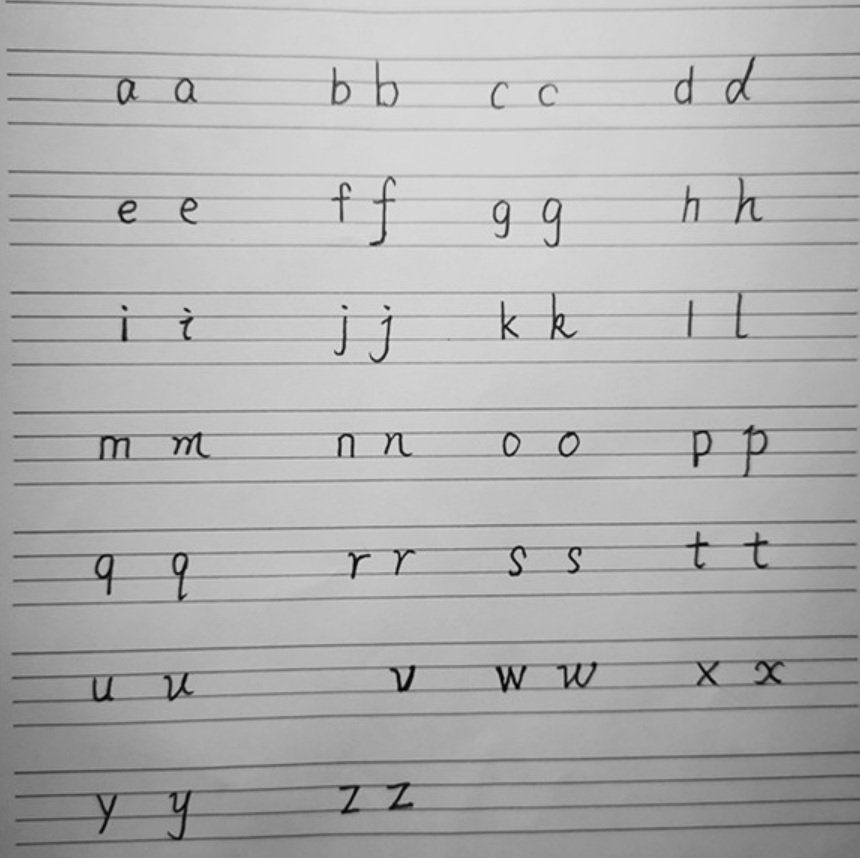 a a b b c c d d
e e f f g g h h
i i j j k k l l
m m n n o o p p
q q r r s s t t
u u v w w x x
y y z z